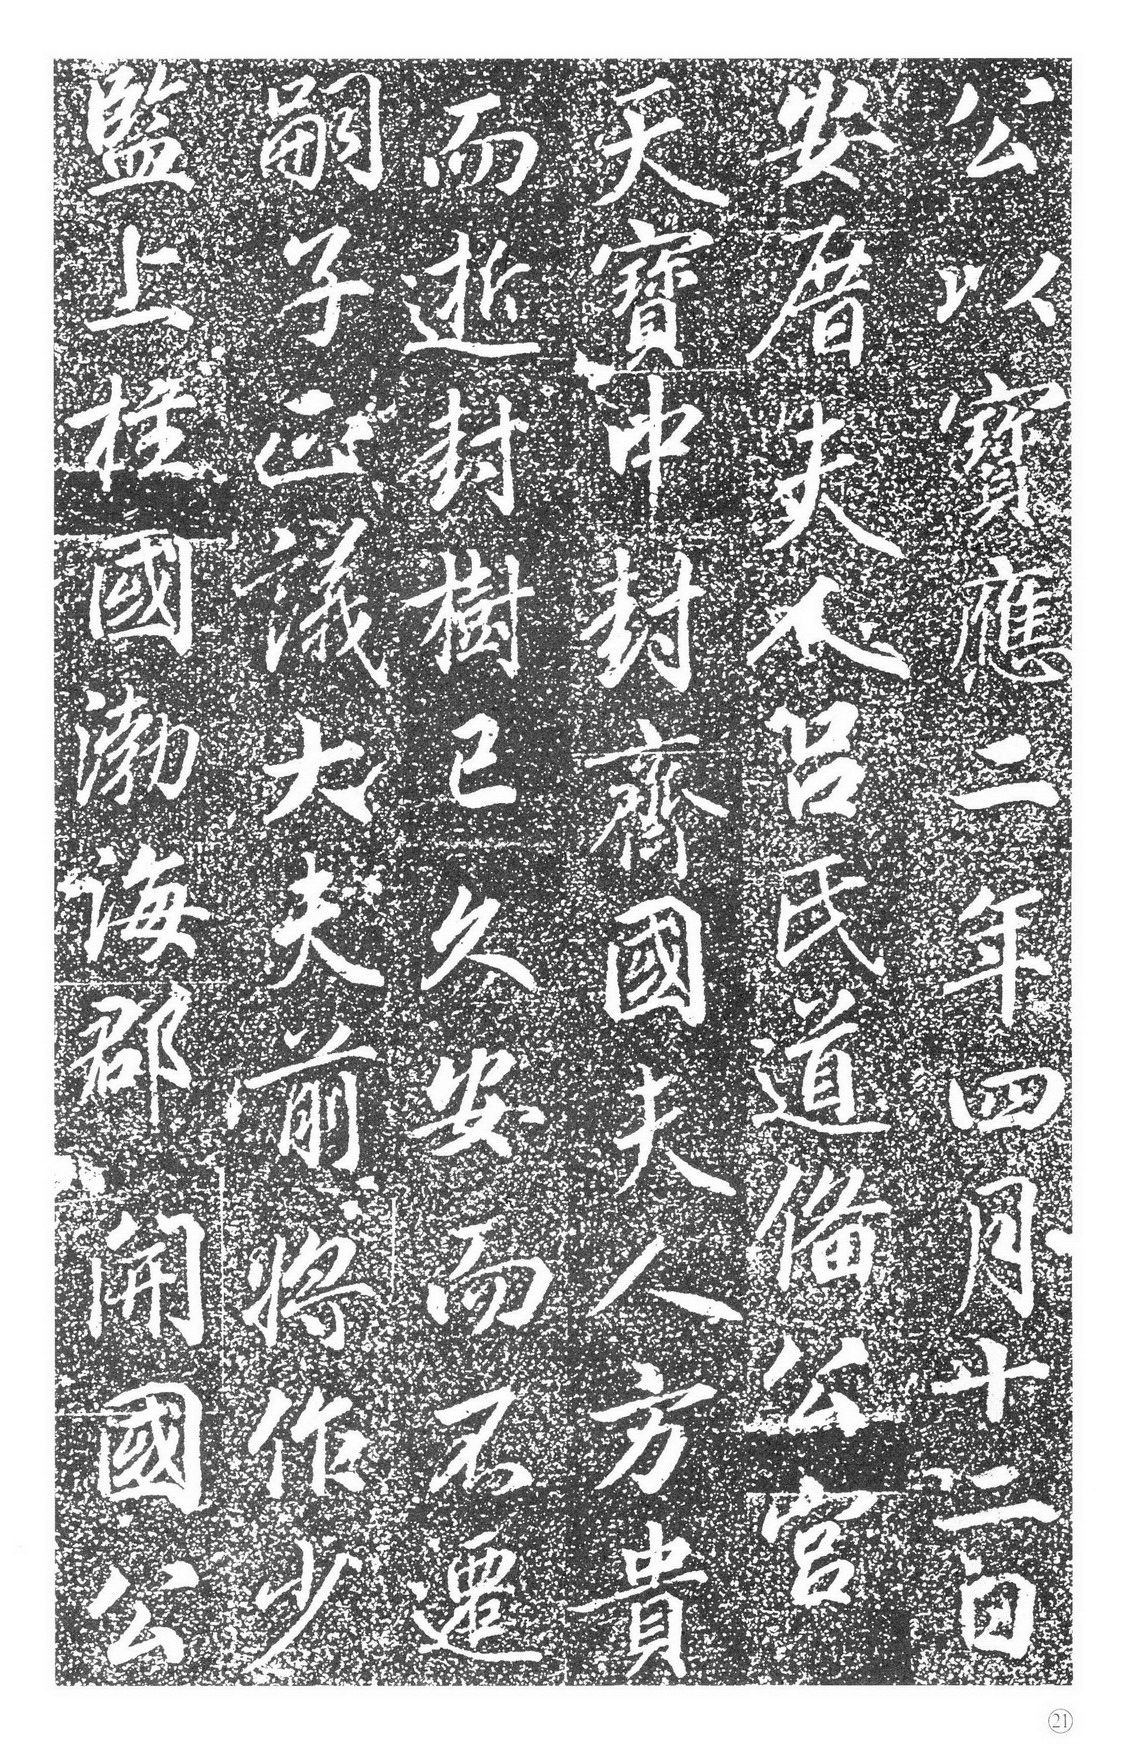 公以寶應二年四月十二日
安厝夫人呂氏道備公宮
天寶中封齊國夫人方貴
而逝封樹已久安而不遷
嗣子正議大夫前將作少
監上柱國渤海郡開國公
21